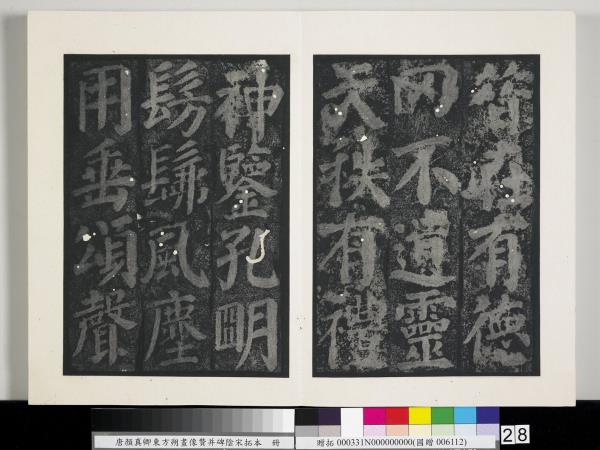 昔在有德
罔不遺靈
天秩有禮
神鑒孔明
髣髴風塵
用垂頌聲
唐顏真卿東方朔畫像贊并碑陰宋拓本 冊
贈拓 000331N000000000(國贈 006112)
28